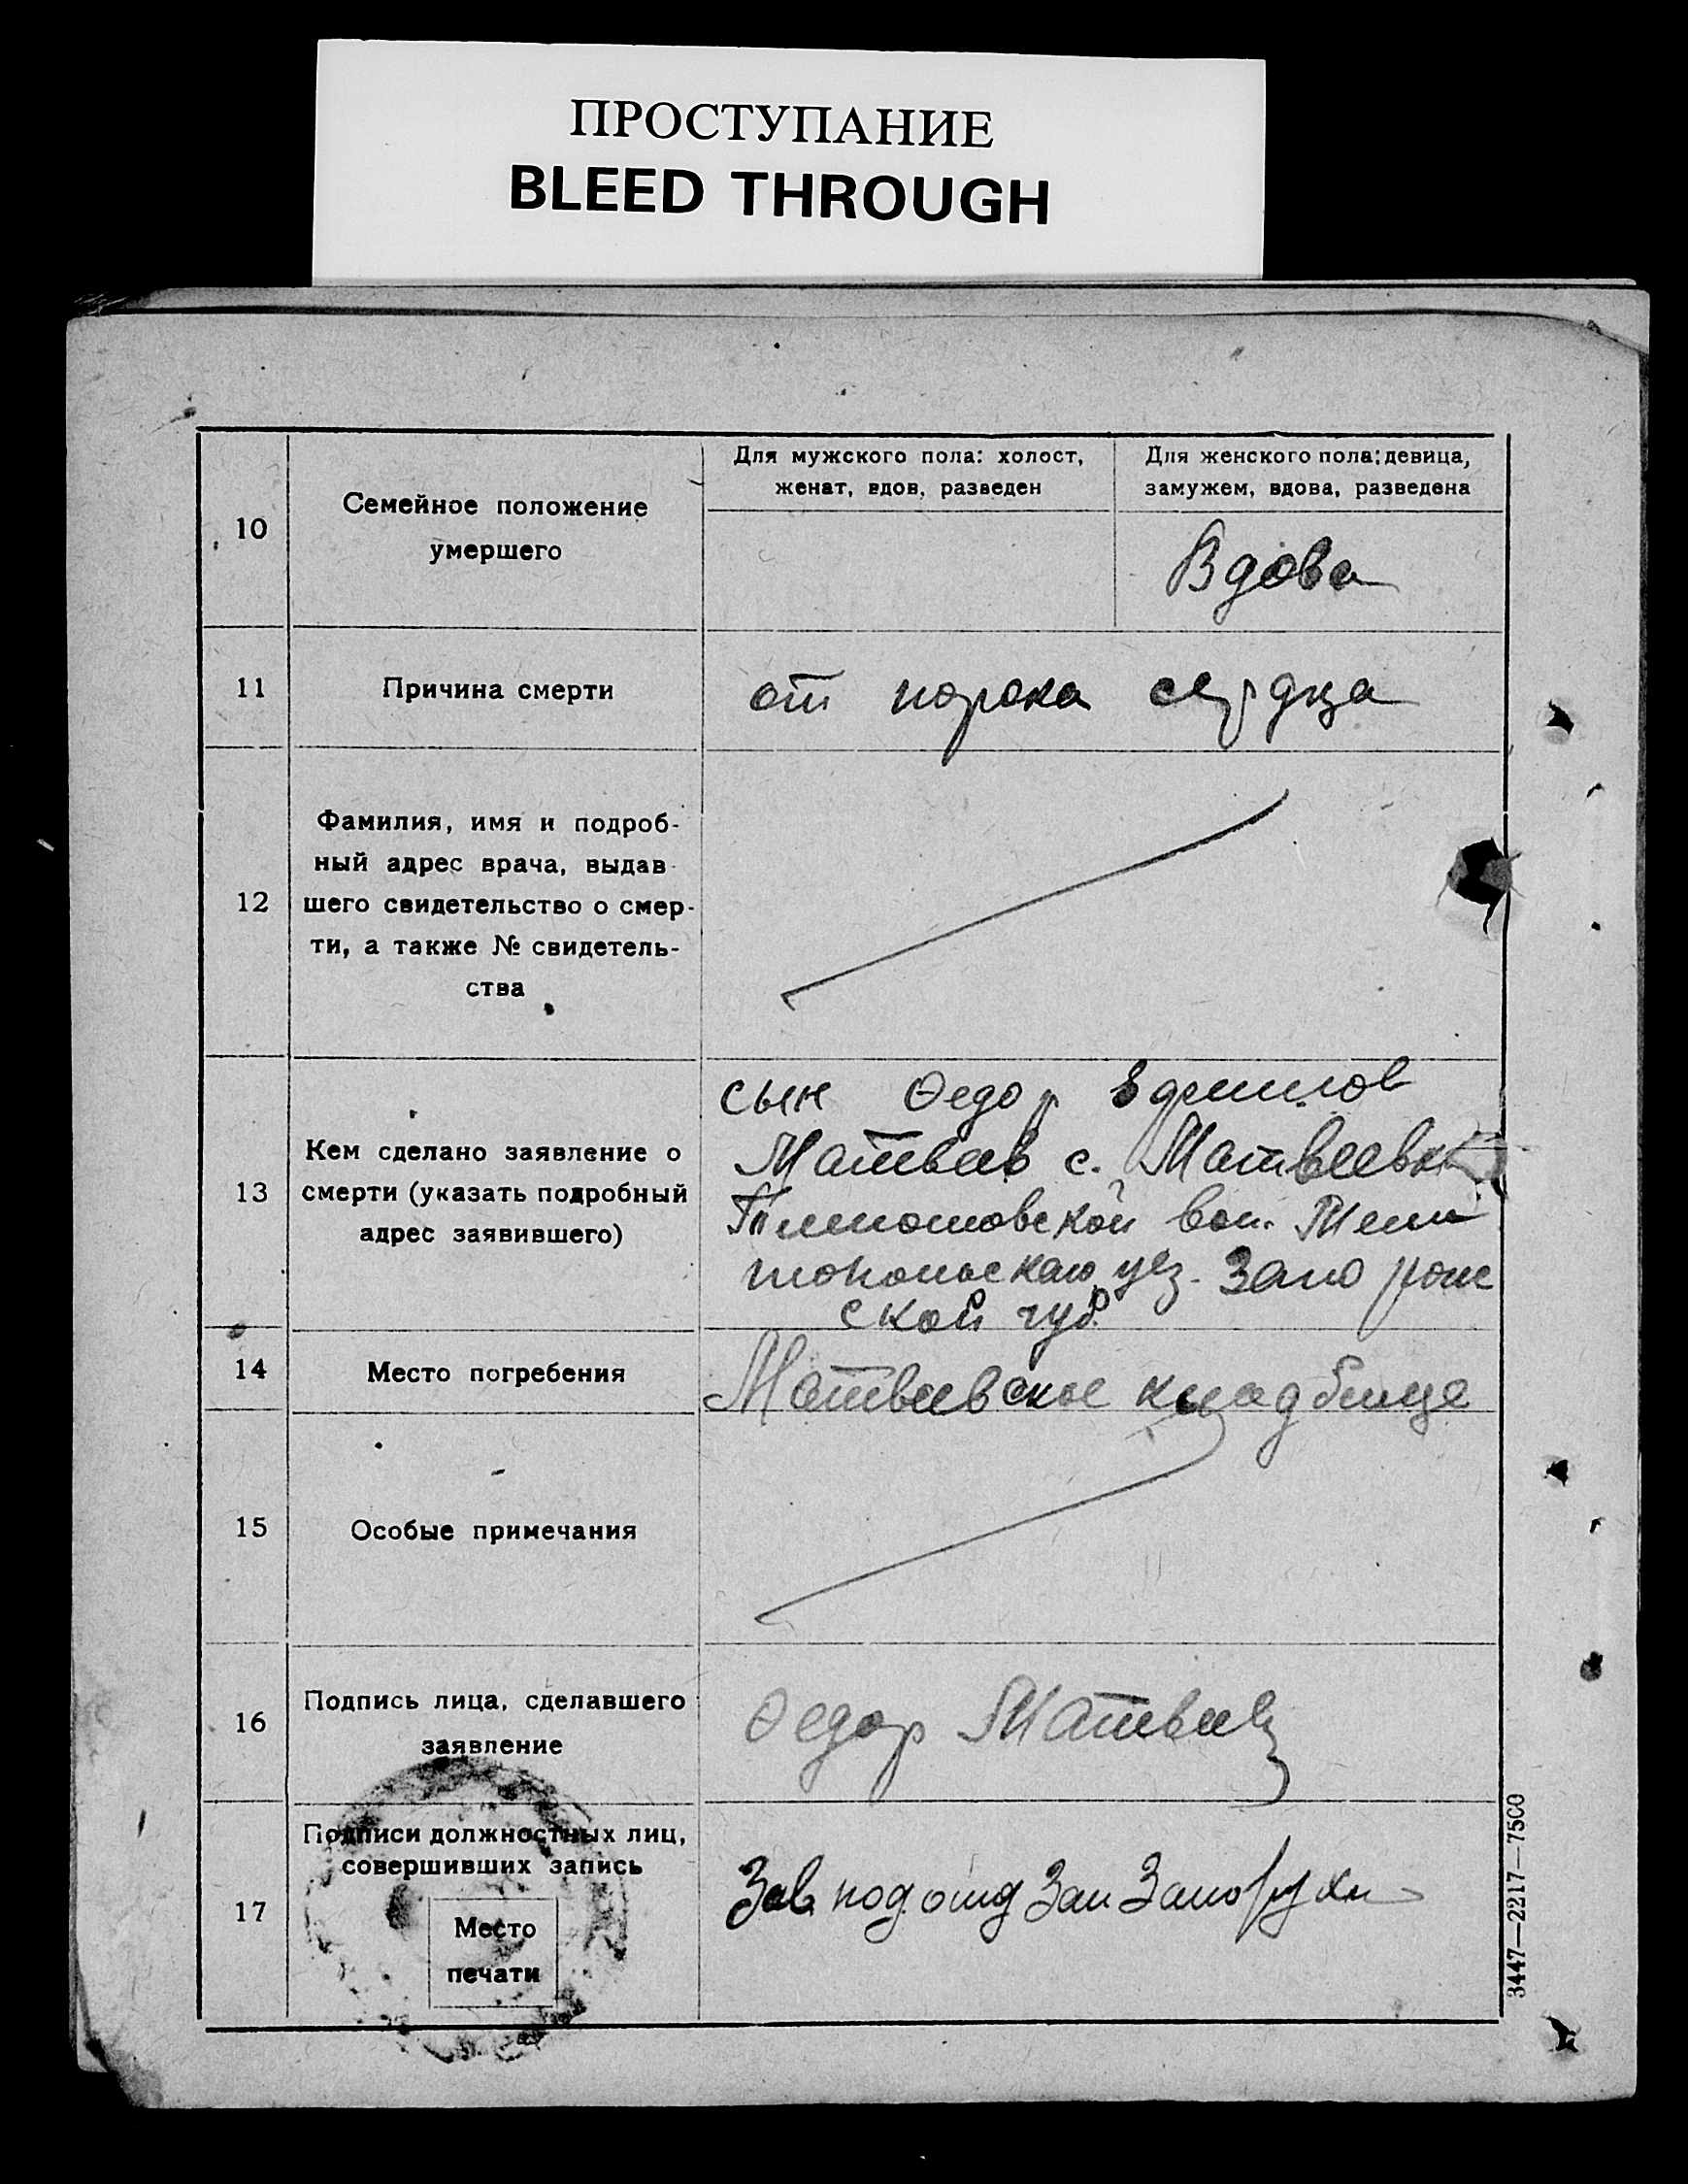 ПРОСТУПАНИЕ
BLEED THROUGH
10
Семейное положение
умершего
Для мужского пола: холост,
женат, вдов, разведен
Для женского пола: девица,
замужем, вдова, разведена
Вдова
11
Причина смерти
от порока сердца
12
Фамилия, имя и подроб-
ный адрес врача, выдав
шего свидетельство о смер-
ти, а также № свидетель-
ства
13
Кем сделано заявление о
смерти (указать подробный
адрес заявившего)
сын Ѳедор Ефимов
Матвеев с. Матвеевки
вол. Мели
топольскаго уез. Запорож
ской губ.
14
Место погребения
Матвеевское кладбище
15
Особые примечания
16
Подпись лица, сделавшего
заявление
Ѳедор Матвеев
17
Подписи должностных лиц,
совершивших запись
Место
печати
Зав подотд Зап
3447—2217—7500